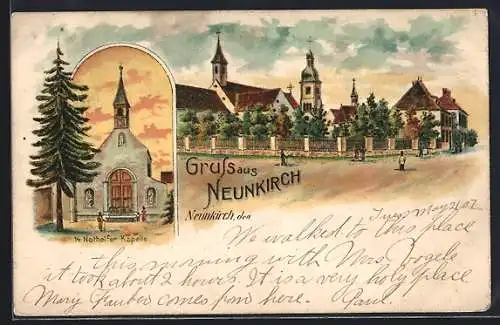 Gruss aus
NEUNKIRCH
14 Nothelfer Kapelle
Neunkirch, den
Tues May 21/07
We walked to this place
this morning with Mrs. Vogele
it took about 2 hours. It is a very holy place
Mary Fauber comes from here. Paul.